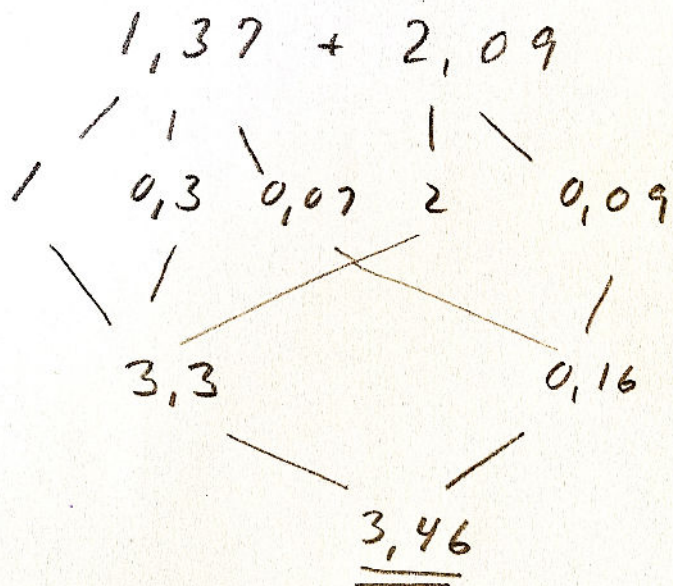 1,37 + 2,09
1 0,3 0,07 2 0,09
3,3 0,16
3,46